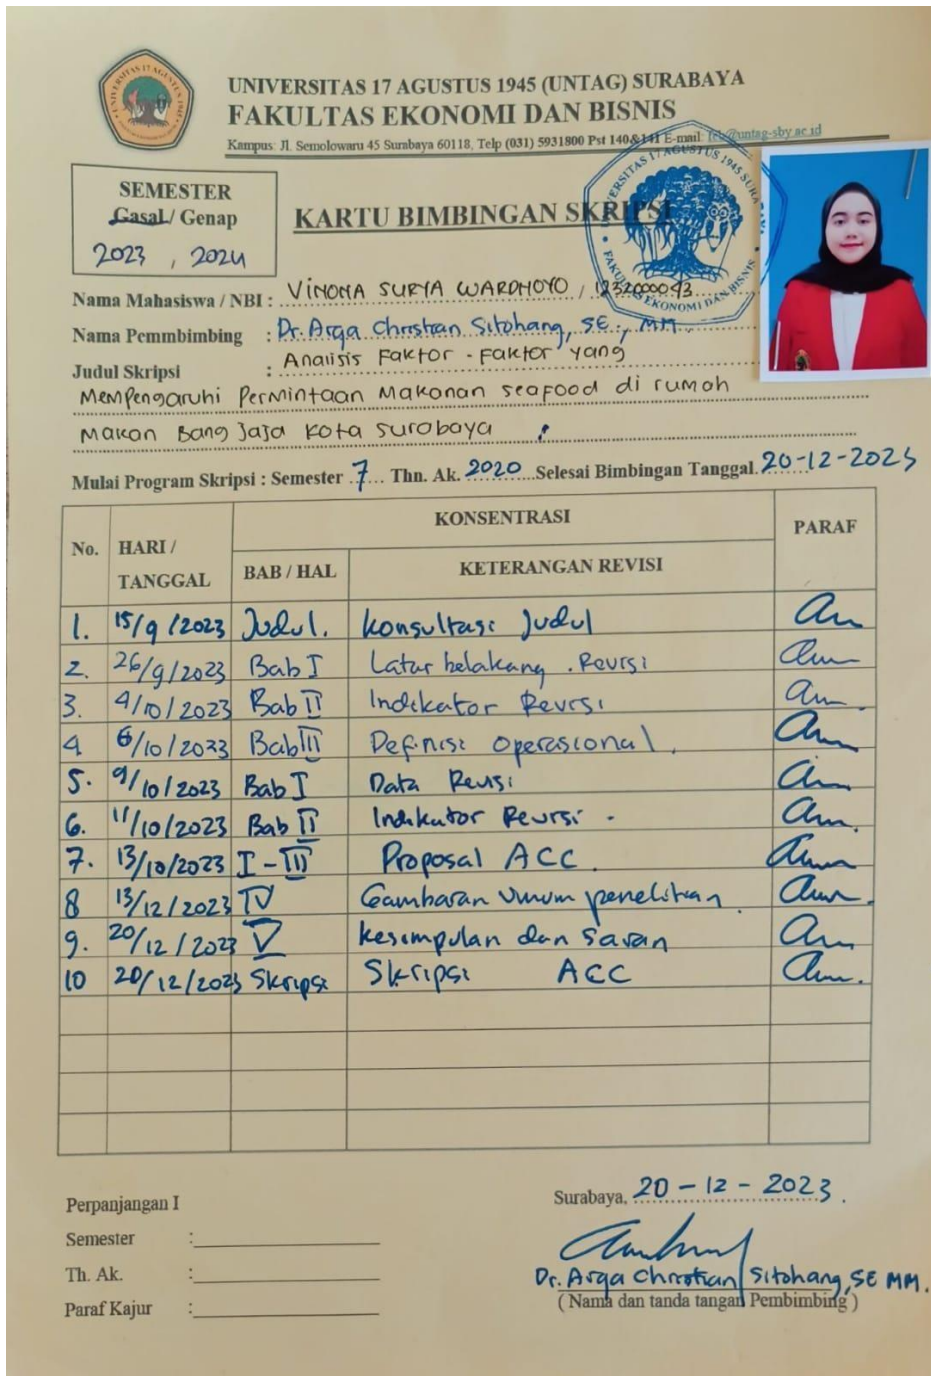 UNIVERSITAS 17 AGUSTUS 1945 (UNTAG) SURABAYA
FAKULTAS EKONOMI DAN BISNIS
Kampus: Jl. Semolowaru 45 Surabaya 60118, Telp (031) 5931800 Pst 140&141 E-mail: feb@untag-sby.ac.id
SEMESTER
Gasal / Genap
2023 , 2024
KARTU BIMBINGAN SKRIPSI
Nama Mahasiswa / NBI : VINONA SURYA WARDHOYO / 1232000093
Nama Pemmbimbing : Dr. Arga Christian Sitohang, SE., MM.
Judul Skripsi : Anaiisis Faktor - Faktor yang
Mempengaruhi Permintaan Makanan seafood di rumah
Makan Bang Jaja Kota Surabaya
Mulai Program Skripsi : Semester 7 Thn. Ak. 2020 Selesai Bimbingan Tanggal 20-12-2023
No. HARI / TANGGAL KONSENTRASI PARAF
BAB / HAL KETERANGAN REVISI
1. 15/9/2023 Judul. Konsultasi Judul
2. 26/9/2023 Bab I Latar belakang . Revisi
3. 4/10/2023 Bab II Indikator Revisi
4 6/10/2023 Bab III Definisi Operasional.
5. 9/10/2023 Bab I Data Revisi
6. 11/10/2023 Bab II Indikator Revisi .
7. 13/10/2023 I - III Proposal ACC.
8 13/12/2023 IV Gambaran Umum penelitian.
9. 20/12/2023 V Kesimpulan dan Saran
10 20/12/2023 Skripsi Skripsi ACC
Perpanjangan I
Semester :
Th. Ak. :
Paraf Kajur :
Surabaya, 20 - 12 - 2023.
Dr. Arga Christian Sitohang, SE MM.
( Nama dan tanda tangan Pembimbing )